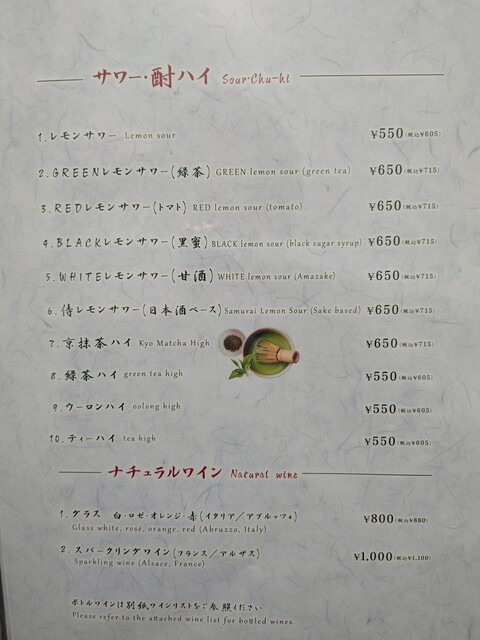 サワー・酎ハイ Sour・Chu-hi
1.レモンサワー Lemon sour ¥550(税込¥605)
2.GREENレモンサワー(緑茶) GREEN lemon sour (green tea) ¥650(税込¥715)
3.REDレモンサワー(トマト) RED lemon sour (tomato) ¥650(税込¥715)
4.BLACKレモンサワー(黒蜜) BLACK lemon sour (black sugar syrup) ¥650(税込¥715)
5.WHITEレモンサワー(甘酒) WHITE lemon sour (Amazake) ¥650(税込¥715)
6.侍レモンサワー(日本酒ベース) Samurai Lemon Sour (Sake based) ¥650(税込¥715)
7.京抹茶ハイ Kyo Matcha High ¥650(税込¥715)
8.緑茶ハイ green tea high ¥550(税込¥605)
9.ウーロンハイ oolong high ¥550(税込¥605)
10.ティーハイ tea high ¥550(税込¥605)
ナチュラルワイン Natural wine
1.グラス 白・ロゼ・オレンジ・赤(イタリア/アブルッツィ) ¥800(税込¥880)
Glass white, rosé, orange, red (Abruzzo, Italy)
2.スパークリングワイン(フランス/アルザス) ¥1,000(税込¥1,100)
Sparkling wine (Alsace, France)
ボトルワインは別紙ワインリストをご参照ください
Please refer to the attached wine list for bottled wines.